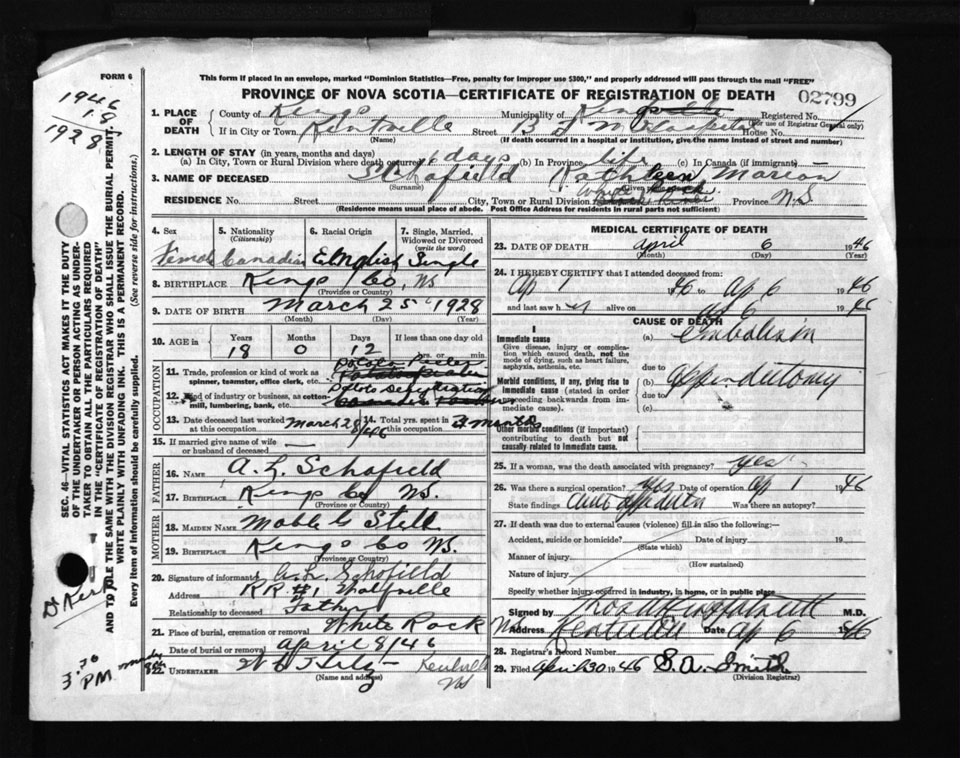 FORM 6
This form if placed in an envelope, marked "Dominion Statistics—Free, penalty for improper use $300," and properly addressed will pass through the mail "FREE"
PROVINCE OF NOVA SCOTIA—CERTIFICATE OF REGISTRATION OF DEATH
02799
1946
18
1928
1. PLACE OF DEATH County of Kings Municipality of Kings Registered No.
(For use of Registrar General only)
If in City or Town Kentville Street B F M Hospital House No.
(Name) (If death occurred in a hospital or institution, give the name instead of street and number)
2. LENGTH OF STAY (in years, months and days)
(a) In City, Town or Rural Division where death occurred 6 days (b) In Province life (c) In Canada (if immigrant) —
3. NAME OF DECEASED Schofield Kathleen Marion
(Surname)
RESIDENCE No. Street City, Town or Rural Division White Rock Province N.S.
(Residence means usual place of abode. Post Office Address for residents in rural parts not sufficient)
SEC. 46—VITAL STATISTICS ACT MAKES IT THE DUTY
OF THE UNDERTAKER OR PERSON ACTING AS UNDER-
TAKER TO OBTAIN ALL THE PARTICULARS REQUIRED
IN THE "CERTIFICATE OF REGISTRATION OF DEATH"
AND TO FILE THE SAME WITH THE DIVISION REGISTRAR WHO SHALL ISSUE THE BURIAL PERMIT.
WRITE PLAINLY WITH UNFADING INK. THIS IS A PERMANENT RECORD.
Every item of information should be carefully supplied. (See reverse side for instructions.)
4. Sex 5. Nationality (Citizenship) 6. Racial Origin 7. Single, Married, Widowed or Divorced (write the word)
Female Canadian English Single
8. BIRTHPLACE Kings Co, NS
(Province or Country)
9. DATE OF BIRTH March 25 1928
(Month) (Day) (Year)
10. AGE in Years Months Days If less than one day
18 0 12 hrs. or min.
OCCUPATION
11. Trade, profession or kind of work as spinner, teamster, office clerk, etc.
12. Kind of industry or business, as cotton-mill, lumbering, bank, etc.
13. Date deceased last worked at this occupation March 28/46 14. Total yrs. spent in this occupation months
15. If married give name of wife or husband of deceased —
FATHER
16. NAME A. L. Schofield
17. BIRTHPLACE Kings Co NS.
(Province or Country)
MOTHER
18. MAIDEN NAME
19. BIRTHPLACE Kings Co NS.
(Province or Country)
20. Signature of informant A. L. Schofield
Address R.R. #1 Wolfville
Relationship to deceased Father
21. Place of burial, cremation or removal White Rock
Date of burial or removal April 8/46
22. UNDERTAKER Kentville NS
(Name and address)
3.30 PM
MEDICAL CERTIFICATE OF DEATH
23. DATE OF DEATH April 6 1946
(Month) (Day) (Year)
24. I HEREBY CERTIFY that I attended deceased from:
Ap 1 46 to Ap 6 1946
and last saw her alive on Ap 6 1946
CAUSE OF DEATH
I
Immediate cause
Give disease, injury or complication which caused death, not the mode of dying, such as heart failure, asphyxia, asthenia, etc.
(a) embolism
due to
Morbid conditions, if any, giving rise to immediate cause (stated in order proceeding backwards from immediate cause).
(b) appendectomy
due to
(c)
II
Other morbid conditions (if important) contributing to death but not causally related to immediate cause.
25. If a woman, was the death associated with pregnancy?
26. Was there a surgical operation? yes Date of operation Ap 1 1946
State findings Was there an autopsy?
27. If death was due to external causes (violence) fill in also the following:—
Accident, suicide or homicide? Date of injury 19
(State which)
Manner of injury
(How sustained)
Nature of injury
Specify whether injury occurred in industry, in home, or in public place
Signed by M.D.
Address Kentville Date Ap 6 1946
28. Registrar's Record Number
29. Filed April 30 1946 S. A. Smith
(Division Registrar)